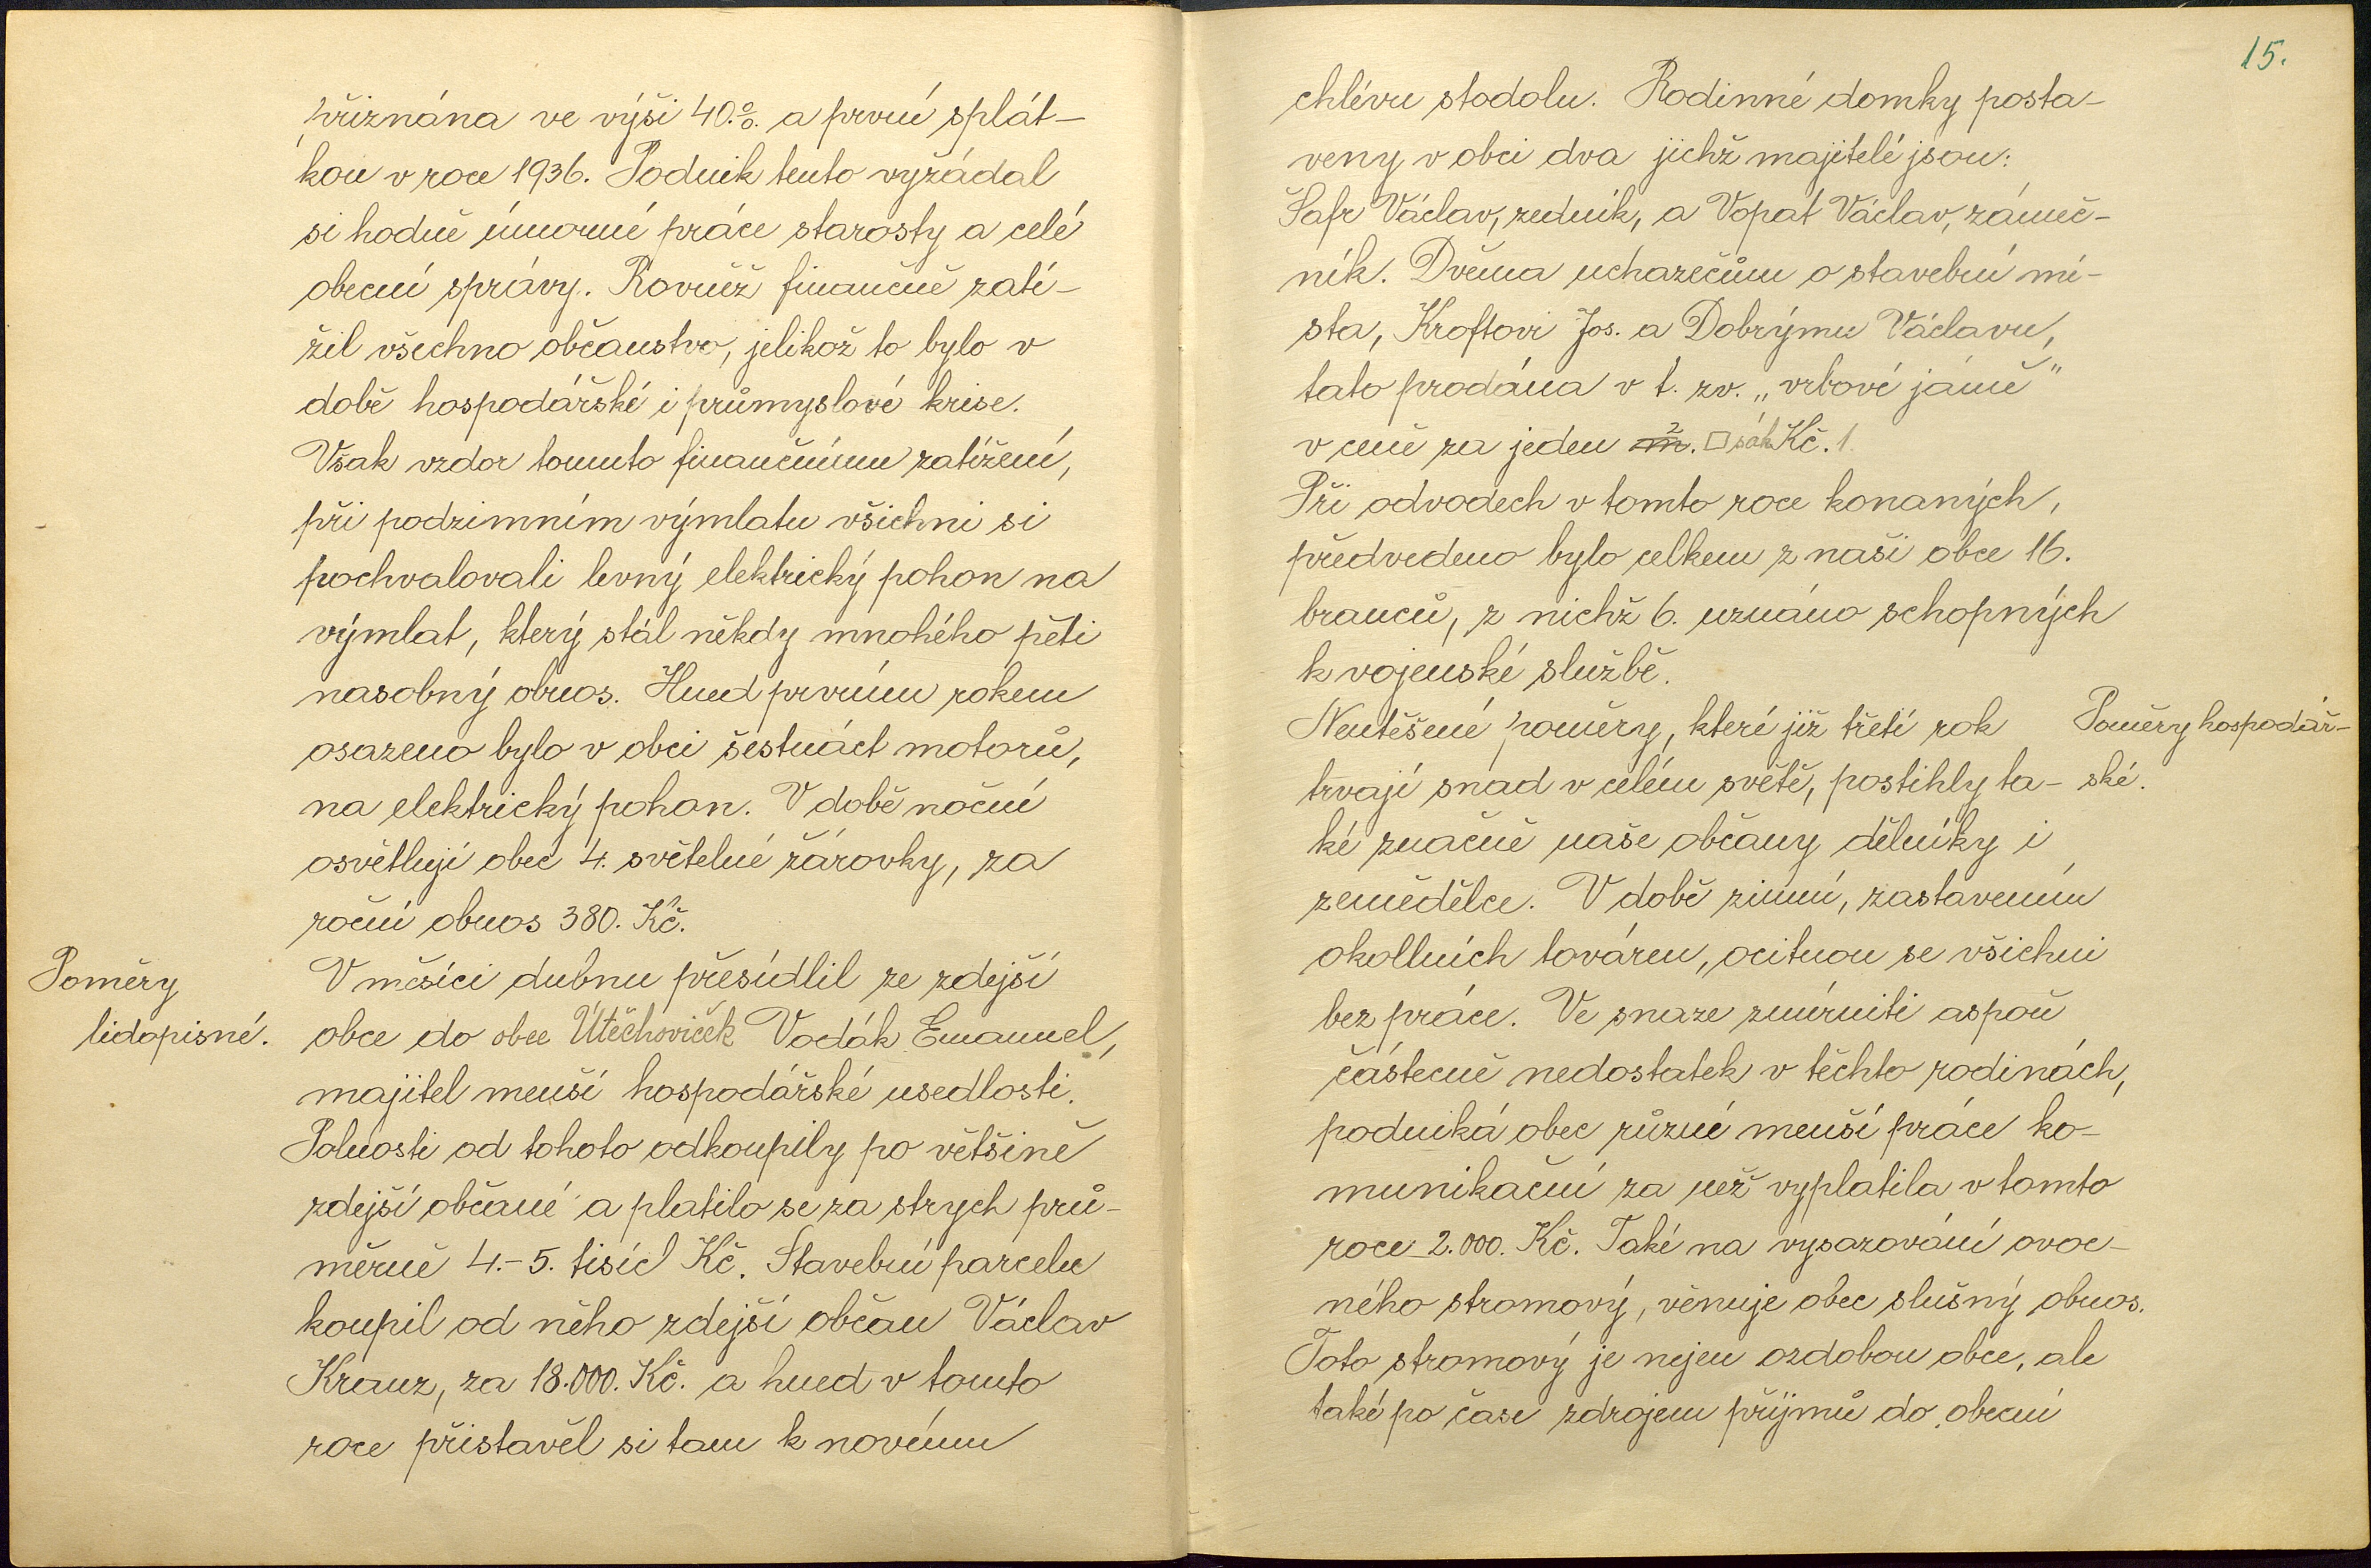 přiznána ve výši 40.%. a první splát-
kou v roce 1936. Podnik tento vyžádal
si hodně úmorné práce starosty a celé
obecní správy. Rovněž finančně zatí-
žil všechno občanstvo, jelikož to bylo v
době hospodářské i průmyslové krise.
Však vzdor tomuto finančnímu zatížení,
při podzimním výmlatu všichni si
pochvalovali levný elektrický pohon na
výmlat, který stál někdy mnohého pěti
nasobný obnos. Hned prvním rokem
osazeno bylo v obci šestnáct motorů,
na elektrický pohon. V době noční
osvětlují obec 4. světelné žárovky, za
roční obnos 380. Kč.
Poměry
lidopisné.
V měsíci dubnu přesídlil ze zdejší
obce do obce Útěchoviček Vodák Emanuel,
majitel menší hospodářské usedlosti.
Polnosti od tohoto odkoupily po většině
zdejší občané a platilo se za strych prů-
měrně 4.-5. tisíc Kč. Stavební parcelu
koupil od něho zdejší občan Václav
Krauz, za 18.000. Kč. a hned v tomto
roce přistavěl si tam k novému
15.
chlévu stodolu. Rodinné domky posta-
veny v obci dva jichž majitelé jsou:
Šafr Václav, zedník, a Vopat Václav, zámeč-
ník. Dvěma uchazečům o stavební mí-
sta, Kroftovi Jos. a Dobrýmu Václavu,
tato prodána v t. zv. „vrbové jámě"
v ceně za jeden m². □ sáh Kč. 1.
Při odvodech v tomto roce konaných,
předvedeno bylo celkem z naší obce 16.
branců, z nichž 6. uznáno schopných
k vojenské službě.
Neutěšené poměry, které již třetí rok
trvají snad v celém světě, postihly ta-
ké značně naše občany dělníky i
zemědělce. V době zimní, zastavením
okollních továren, ocitnou se všichni
bez práce. Ve snaze zmírniti aspoň
částecně nedostatek v těchto rodinách,
podniká obec různé menší práce ko-
munikační za něž vyplatila v tomto
roce 2.000. Kč. Také na vysazování ovoc-
ného stromový, věnuje obec slušný obnos.
Toto stromový je nejen ozdobou obce, ale
také po čase zdrojem příjmů do obecní
Poměry hospodář-
ské.